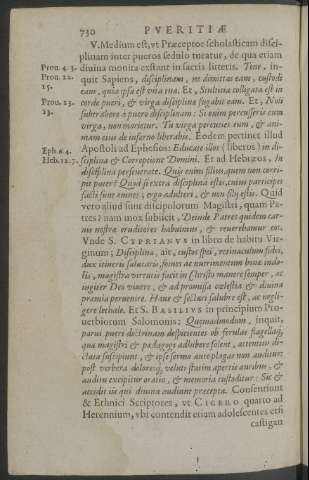 730 PVERITIÆ
V. Medium est, vt Præceptor scholasticam disci-
plinam inter pueros sedulò tueatur, de qua etiam
Prou. 4. 3. diuina monita exstant in sacris literis. Tene, in-
Prou. 22. quit Sapiens, disciplinam, ne dimittas eam, custodi
15. eam, quia ipsa est vita tua. Et, Stultitia colligata est in
Prou. 23. corde pueri, & virga disciplinæ fugabit eam. Et, Noli
23. subtrahere à puero disciplinam: Si enim percusseris eum
virga, non morietur. Tu virga percuties eum, & ani-
mam eius de inferno liberabis. Eodem pertinet illud
Eph. 6. 4. Apostoli ad Ephesios: Educate illos (liberos) in di-
Heb. 12. 7. sciplina & Correptione Domini. Et ad Hebræos, In
disciplina perseuerate. Quis enim filius, quem non corri-
pit pater? Quod si extra disciplinam estis, cuius participes
facti sunt omnes; ergo adulteri, & non filij estis. Quid
verò aliud sunt discipulorum Magistri, quam Pa-
tres? nam mox subiicit, Deinde Patres quidem car-
nis nostræ eruditores habuimus, & reuerebamur eos.
Vnde S. CYPRIANVS in libro de habitu Vir-
ginum; Disciplina, ait, custos spei, retinaculum fidei,
dux itineris salutaris, fomes ac nutrimentum bonæ indo-
lis, magistra virtutis facit in Christo manere semper, ac
iugiter Deo viuere, & ad promissa cælestia & diuina
præmia peruenire. Hanc & sectari salubre est, ac negli-
gere lethale. Et S. BASILIVS in principium Pro-
uerbiorum Salomonis: Quemadmodum, inquit,
parui pueri doctrinam despicientes ob ferulas flagellaq́,
quæ magistri & pædagogi adhibere solent, attentius di-
ctata suscipiunt, & ipse sermo ante plagas non auditus
post verbera doloresq́, velut statim apertis auribus, &
auditu excipitur oratio, & memoria custoditur: Sic &
accidit iis qui diuina audiunt præcepta. Consentiunt
& Ethnici Scriptores, vt CICERO quarto ad
Herennium, vbi contendit etiam adolescentes etsi
castigan